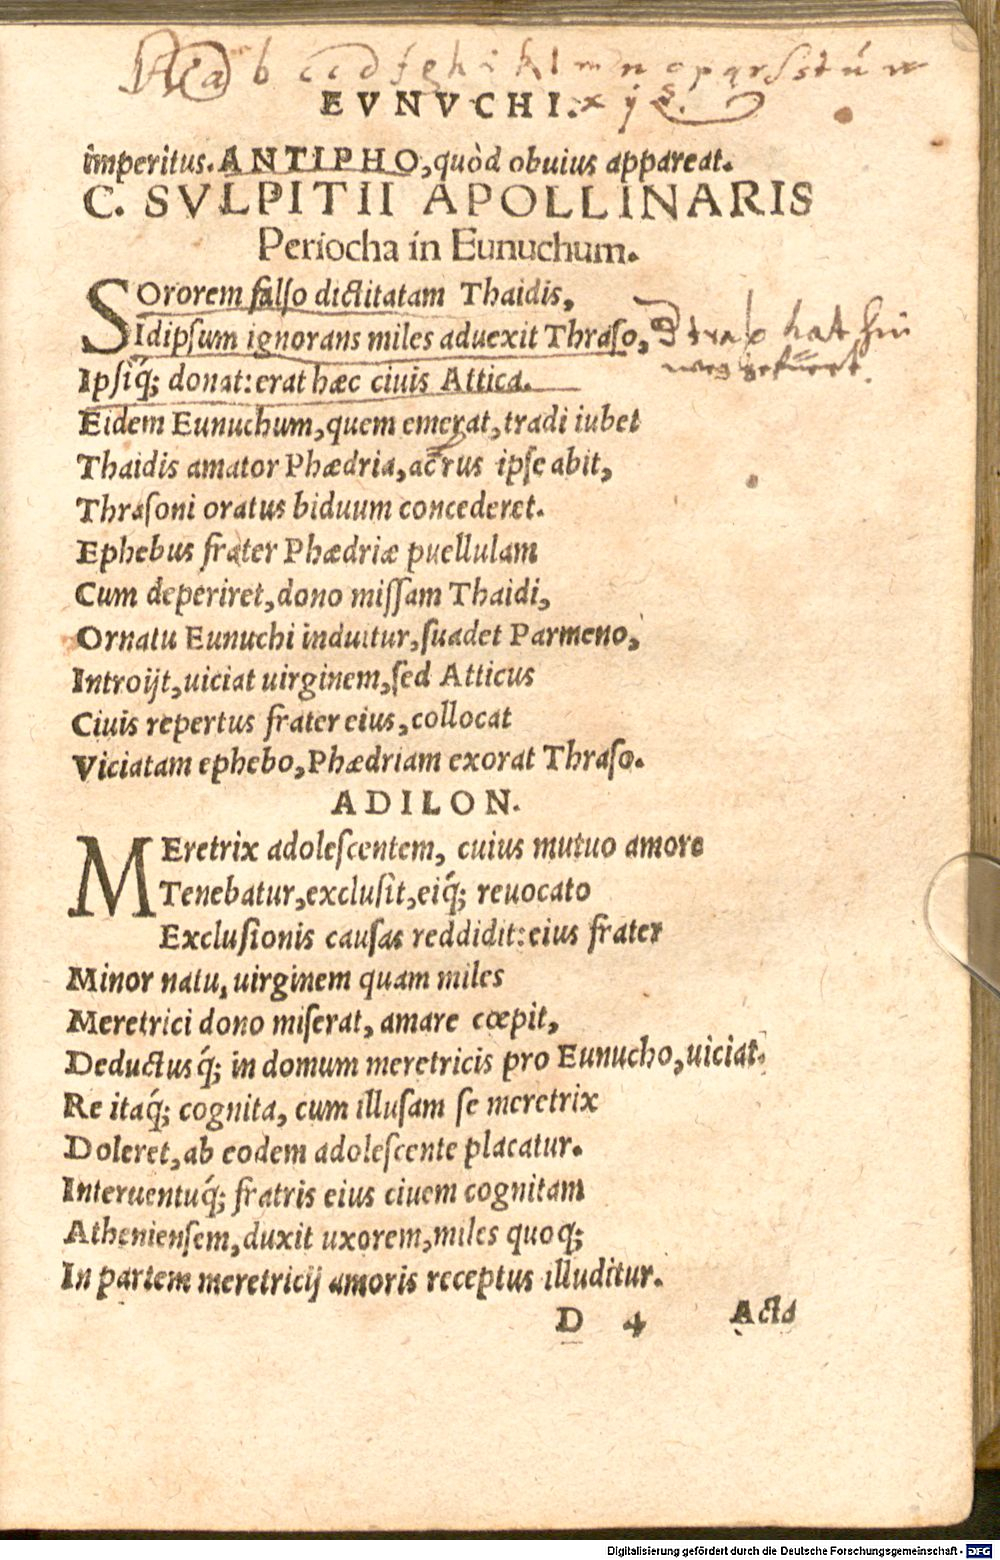 a b c d f g h i k l m n o p q r s s t ú w
EVNVCHI. x y z.
imperitus. ANTIPHO, quòd obuius appareat.
C. SVLPITII APOLLINARIS
Periocha in Eunuchum.
SOrorem falso dictitatam Thaidis,
Idipsum ignorans miles aduexit Thraso,
hat hin
Ipsiq́; donat: erat hæc ciuis Attica.
weg gefüert.
Eidem Eunuchum, quem emerat, tradi iubet
Thaidis amator Phædria, ac rus ipse abit,
Thrasoni oratus biduum concederet.
Ephebus frater Phædriæ puellulam
Cum deperiret, dono missam Thaidi,
Ornatu Eunuchi induitur, suadet Parmeno,
Introijt, uiciat uirginem, sed Atticus
Ciuis repertus frater eius, collocat
Viciatam ephebo, Phædriam exorat Thraso.
ADILON.
MEretrix adolescentem, cuius mutuo amore
Tenebatur, exclusit, eiq́; reuocato
Exclusionis causas reddidit: eius frater
Minor natu, uirginem quam miles
Meretrici dono miserat, amare cœpit,
Deductusq́; in domum meretricis pro Eunucho, uiciat.
Re itaq́; cognita, cum illusam se meretrix
Doleret, ab eodem adolescente placatur.
Interuentuq́; fratris eius ciuem cognitam
Atheniensem, duxit uxorem, miles quoq;
In partem meretricij amoris receptus illuditur.
D 4 Acta
Digitalisierung gefördert durch die Deutsche Forschungsgemeinschaft - DFG